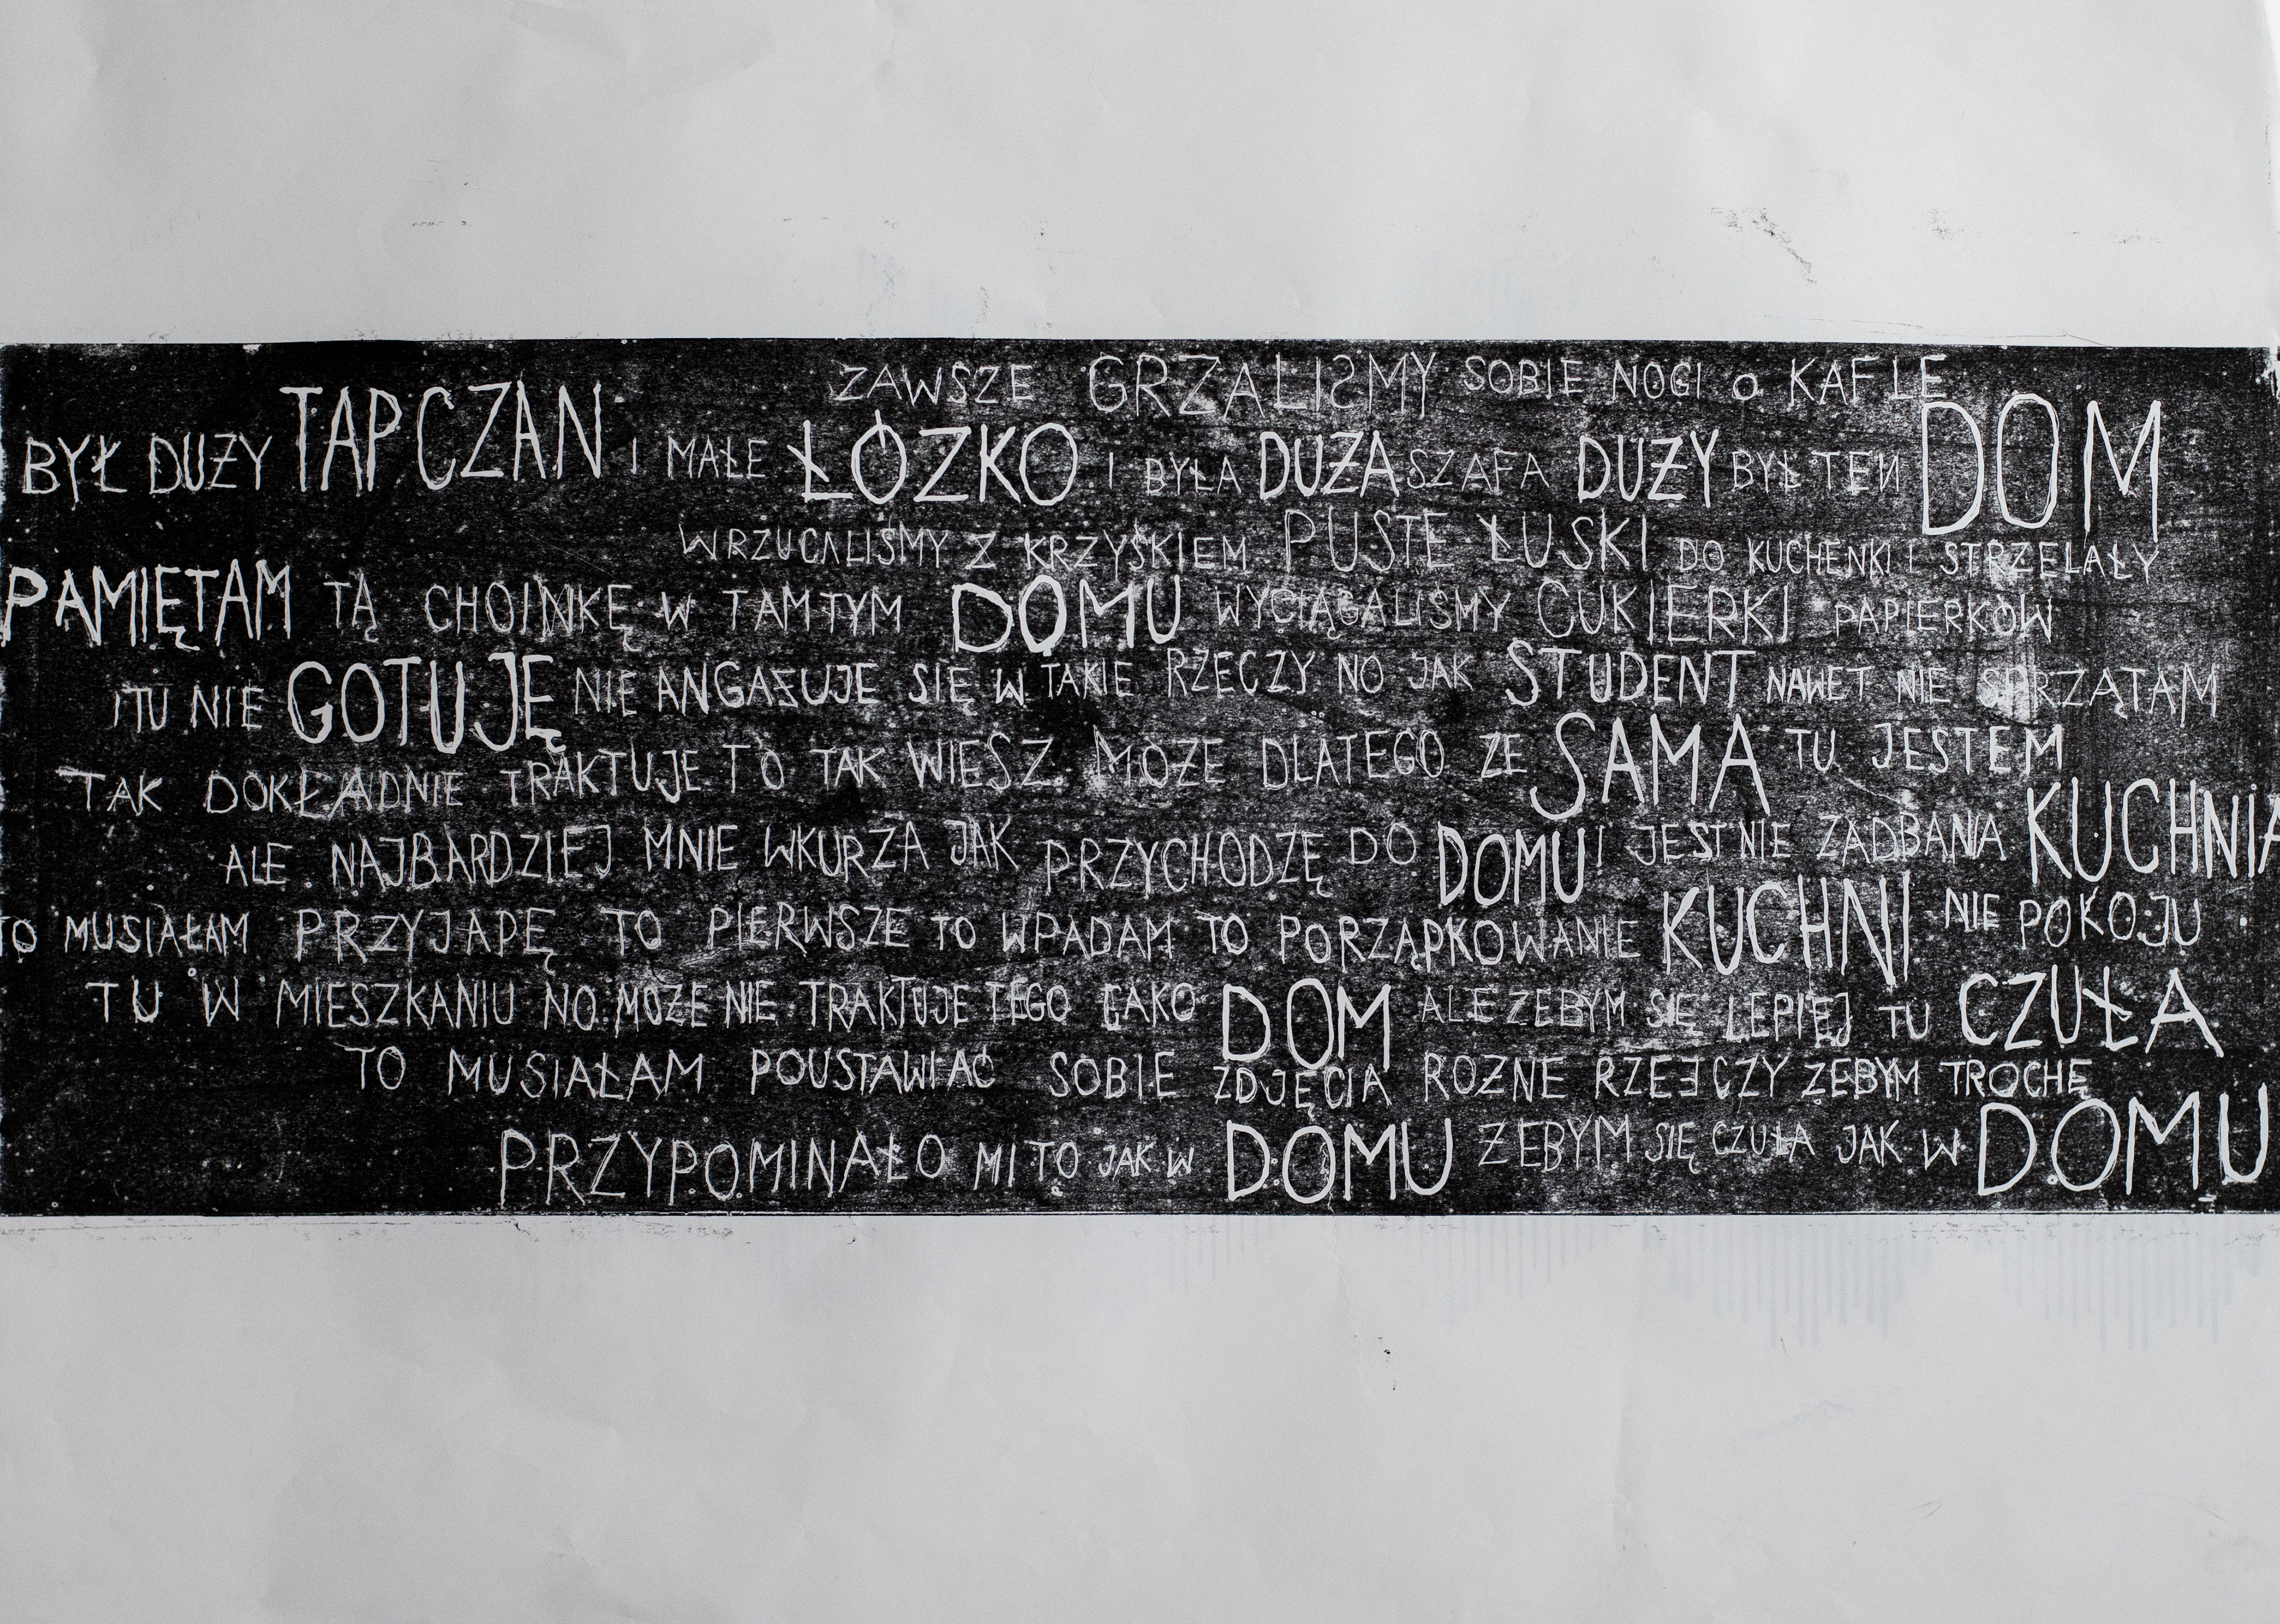 ZAWSZE GRZALISMY SOBIE NOGI O KAFLE
BYŁ DUŻY TAPCZAN I MAŁE ŁÓZKO I BYŁA DUŻA SZAFA DUŻY BYŁ TEN DOM
WRZUCALIŚMY Z KRZYŚKIEM PUSTE ŁUSKI DO KUCHENKI I STRZELAŁY
PAMIĘTAM TĄ CHOINKĘ W TAMTYM DOMU WYCIĄGALIŚMY CUKIERKI PAPIERKÓW
I TU NIE GOTUJĘ NIE ANGAŻUJE SIĘ W TAKIE RZECZY NO JAK STUDENT NAWET NIE SPRZĄTAM
TAK DOKŁADNIE TRAKTUJE TO TAK WIESZ MOŻE DLATEGO ZE SAMA TU JESTEM
ALE NAJBARDZIEJ MNIE WKURZA JAK PRZYCHODZĘ DO DOMU I JEST NIE ZADBANA KUCHNIA
TO MUSIAŁAM PRZYJADĘ TO PIERWSZE TO WPADAM TO PORZĄDKOWANIE KUCHNI NIE POKOJU
TU W MIESZKANIU NO MOŻE NIE TRAKTUJE TEGO JAKO DOM ALE ZEBYM SIĘ LEPIEJ TU CZUŁA
TO MUSIAŁAM POUSTAWIAĆ SOBIE ZDJĘCIA ROZNE RZECZY ZEBYM TROCHĘ
PRZYPOMINAŁO MI TO JAK W DOMU ZEBYM SIĘ CZUŁA JAK W DOMU